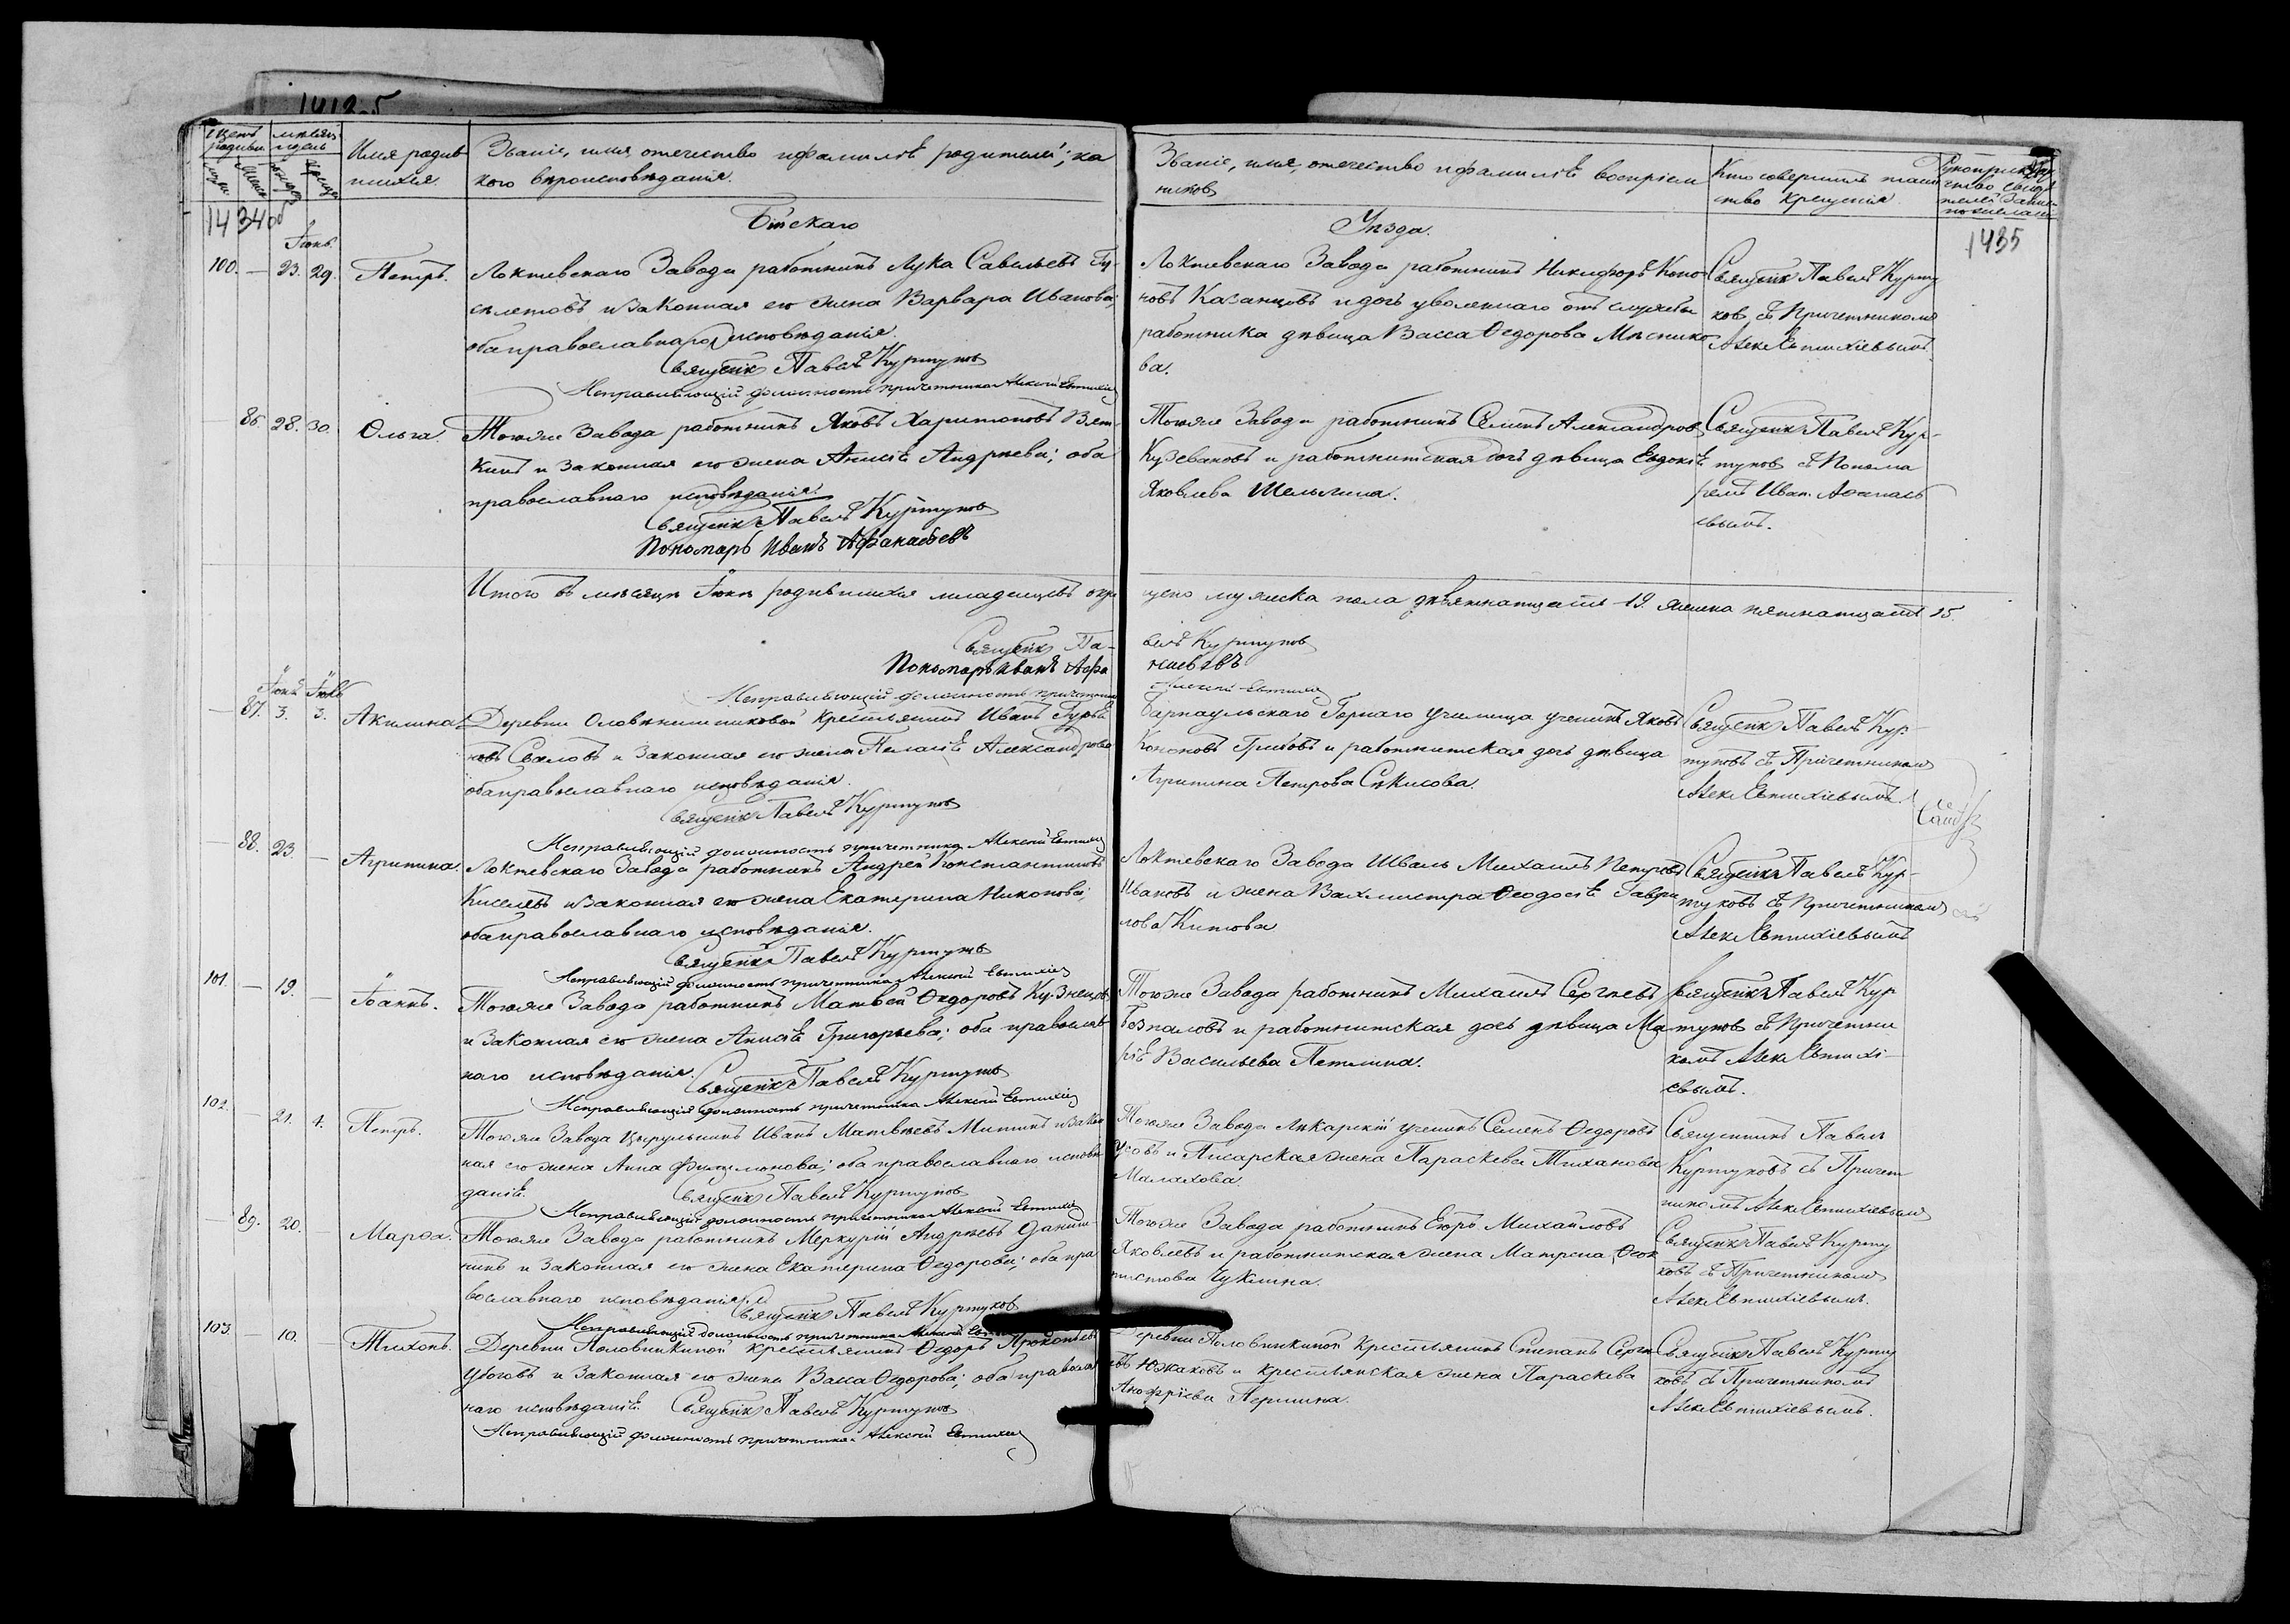 Счетъ родивш.
мѣсяцъ и день
Имя родив
шихся.
Званіе, имя, отечество и фамилія родителей; ка
кого вѣроисповѣданія.
Званіе, имя, отечество и фамиліѣ воспріем
никовъ
Кто совершилъ таин
ство крещенія
1434об
Бійскаго
Уѣзда.
1435
Іюнь.
100. — 23. 29. Петръ.
Локтевскаго Завода работникъ Лука Савельевъ
и законная его жена Варвара Иванова;
оба православнаго исповѣданія.
Священик Павелъ Куртуковъ
Исправляющій должность причетника Алексѣй Евтихіев
Локтевскаго Завода работникъ Никифоръ Коно
новъ Казанцовъ и дочь уволеннаго отъ службы
работника дѣвица Васса Ѳедорова Мѣснико
ва.
Священик Павелъ Курту
ков съ Причетником
Алек. Евтихіевымъ
— 86. 28. 30. Ольга.
Тогоже Завода работникъ Яковъ Харитоновъ Вят
кинъ и законная его жена Анисіѣ Андрѣева; оба
православнаго исповѣданія.
Священик Павелъ Куртуковъ
Пономарь Иванъ Афанасьевъ
Тогоже Завода работникъ Семенъ Александровъ
Кузевановъ и работнитская дочь дѣвица Евдокіѣ
Яковлева Шелыгина.
Священик Павелъ Кур-
туковъ съ Понома
ремъ Иван. Афанась
евымъ.
Итого въ мѣсяцѣ Іюнѣ родившихся младенцевъ окре
щено мужеска пола девятнатцать 19. женска пятнатцать 15.
Священик Па-
велъ Куртуковъ
Пономарь Иванъ Афа
насьевъ
Исправляющій должность причетника
Алексѣй Евтихіев
Іюнь Іюль
— 87. 3. 3. Акилина.
Деревни Оловянишниковой крестьянинъ Иванъ Гурьѣ
новъ Сваловъ и законная его жена Пелагіѣ Александрова
оба православнаго исповѣданія.
Священик Павелъ Куртуковъ
Исправляющій должность причетника Алексѣй Евтихіев
Барнаульскаго Горнаго училища ученикъ Яковъ
Кононовъ Грибовъ и работнитская дочь дѣвица
Агрипина Петрова Сѣкисова.
Священик Павелъ Кур-
туковъ съ Причетником
Алек. Евтихіевымъ.
— 88. 23. — Агрипина.
Локтевскаго Завода работникъ Андрей Константиновъ
Киселевъ и законная его жена Екатерина Никонова;
оба православнаго исповѣданія.
Священик Павелъ Куртуковъ
Исправляющій должность причетника Алексѣй Евтихіев
Локтевскаго Завода Шваль Михаилъ Петровъ
Ивановъ и жена Вахмистра Ѳеодосіѣ Гаври
лова Китова
Священик Павелъ Кур-
туковъ съ Причетником
Алек. Евтихіевымъ
101. — 19. — Іоаннъ.
Тогоже Завода работникъ Матвей Ѳедоровъ Кузнецовъ
и законная его жена Анисіѣ Григорьева; оба православ
наго исповѣданія. Священик Павелъ Куртуковъ
Исправляющій должность причетника Алексѣй Евтихіев
Тогоже Завода работникъ Михаилъ Сергѣевъ
Безпаловъ и работнитская дочь дѣвица Ма
ріѣ Васильева Петлина.
Священик Павелъ Кур
туковъ съ Причетни
комъ Алек. Евтихі-
евымъ.
102. — 21. 4. Петръ.
Тогоже Завода Цырульникъ Иванъ Матвѣевъ Митинъ и закон
ная его жена Анна Филимонова; оба православнаго исповѣ
даніѣ. Священик Павелъ Куртуковъ
Исправляющій должность причетника Алексѣй Евтихіев
Тогоже Завода Лѣкарскій ученикъ Семенъ Ѳедоровъ
Усовъ и Писарская жена Параскева Тиханова
Малахова.
Священникъ Павелъ
Куртуковъ съ Причет
никомъ Алек. Евтихіевым
— 89. 20. — Марѳа.
Тогоже Завода работникъ Меркурій Андрѣевъ Данил
кинъ и законная его жена Екатерина Ѳедорова; оба пра
вославнаго исповѣданія. Священик Павелъ Куртуков
Исправляющій должность причетника Алексѣй
Тогоже Завода работникъ Егоръ Михайловъ
Яковлевъ и работнитская жена Матрена Ѳеок
тистова Чуклина.
Священик Павелъ Курту
ковъ съ Причетником
Алек. Евтихіевымъ.
103. — 10. — Тихонъ.
Деревни Половинкиной крестьянинъ Ѳедоръ Прокопьевъ
и законная его жена Васса Ѳедорова; оба православ
наго исповѣданіѣ. Священик Павелъ Куртуковъ
Исправляющій должность причетника Алексѣй Евтихіев
Деревни Половинкиной крестьянинъ Степанъ Сергѣ
евъ Южаковъ и крестьянская жена Параскева
Анофріева Першина.
Священик Павелъ Курту
ковъ съ Причетникомъ
Алек. Евтихіевымъ.